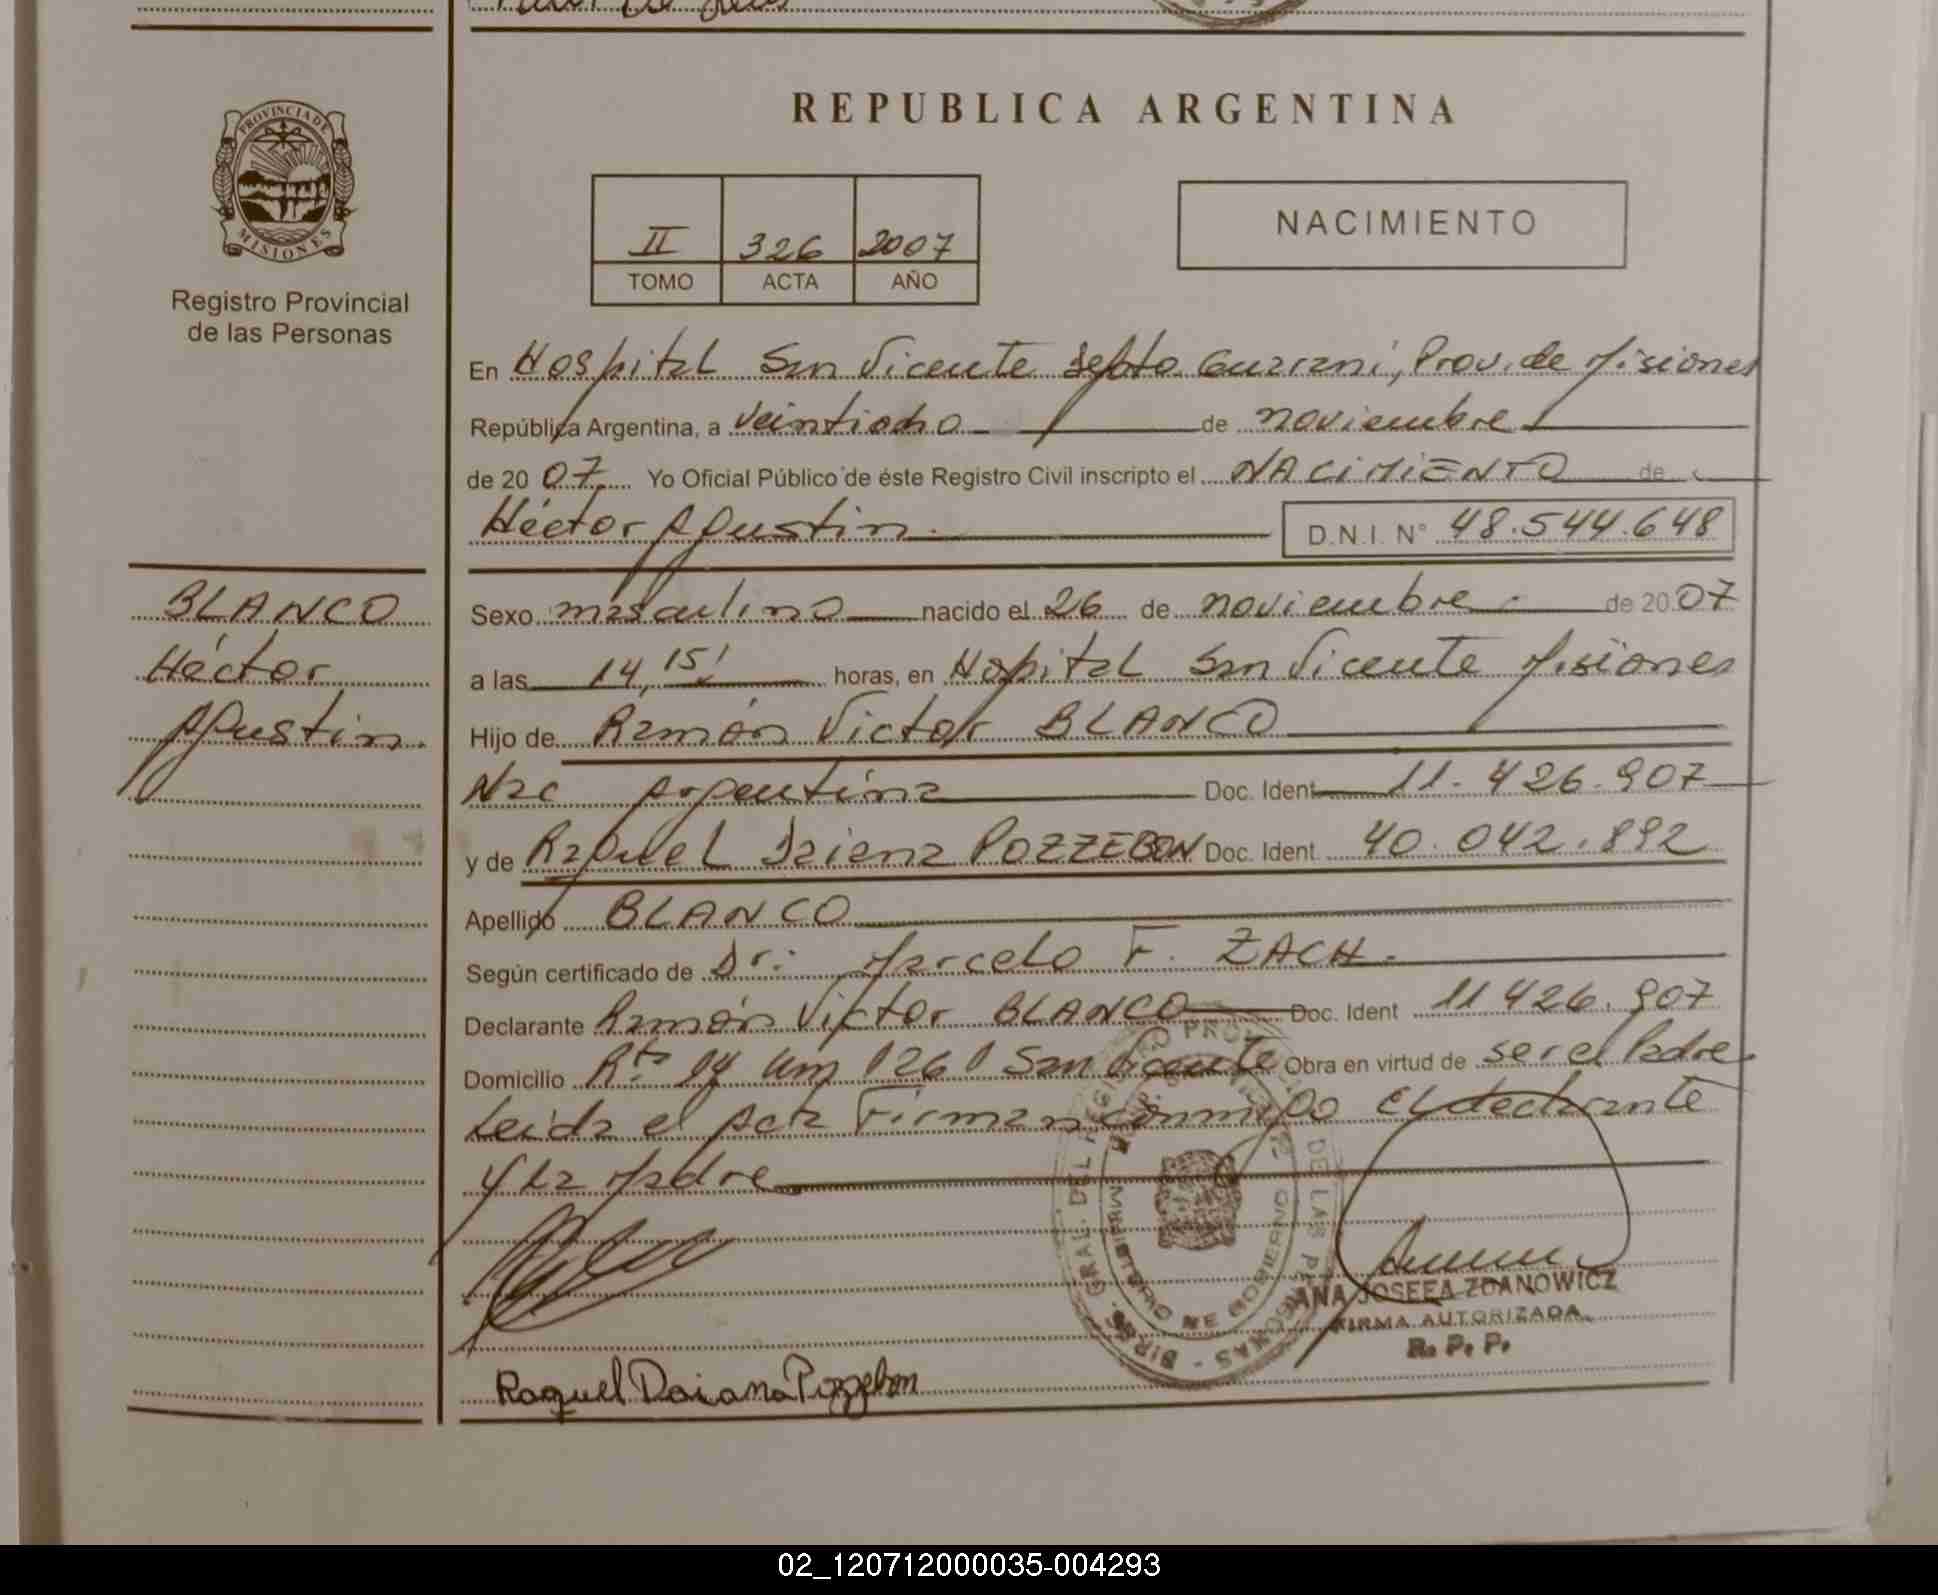 REPUBLICA ARGENTINA
PROVINCIA DE
MISIONES
Registro Provincial
de las Personas
II 326 2007
TOMO ACTA AÑO
NACIMIENTO
En Hospital San Vicente Depto Guaraní, Prov. de Misiones
República Argentina, a veintiocho de noviembre
de 20 07 Yo Oficial Público de éste Registro Civil inscripto el NACIMIENTO de
Héctor Agustin. D.N.I. N° 48.544.648
BLANCO
Héctor
Agustin.
Sexo masculino nacido el 26 de noviembre de 20 07
a las 14,15' horas, en Hospital San Vicente Misiones
Hijo de Ramón Victor BLANCO
Nac Argentina Doc. Ident 11.426.907
y de Raquel Daiana POZZEBON Doc. Ident 40.042.892
Apellido BLANCO
Según certificado de Dr: Marcelo F. ZACH.
Declarante Ramón Victor BLANCO Doc. Ident 11426.907
Domicilio Rta 14 Km 1261 San Vicente Obra en virtud de ser el Padre
Leida el Acta Firman conmigo El declarante
y La Madre
DIR. GRAL. DEL REGISTRO PROVINCIAL DE LAS PERSONAS
MINISTERIO DE GOBIERNO
ANA JOSEFA ZDANOWICZ
FIRMA AUTORIZADA
R. P. P.
Raquel Daiana Pozzebon
02_120712000035-004293